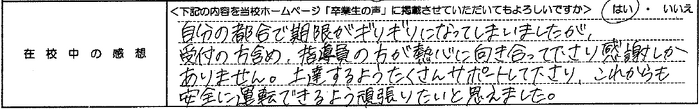 <下記の内容を当校ホームページ「卒業生の声」に掲載させていただいてもよろしいですか> はい ・ いいえ
在校中の感想
自分の都合で期限がギリギリになってしまいましたが、
受付の方含め、指導員の方が熱心に向き合って下さり感謝しか
ありません。上達するようたくさんサポートして下さり、これからも
安全に運転できるよう頑張りたいと思えました。